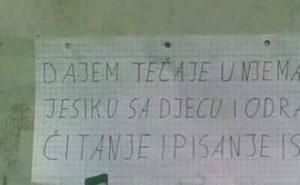 DAJEM TEČAJE U NJEMA
JESIKU SA DJECU I ODRA
ČITANJE I PISANJE IS